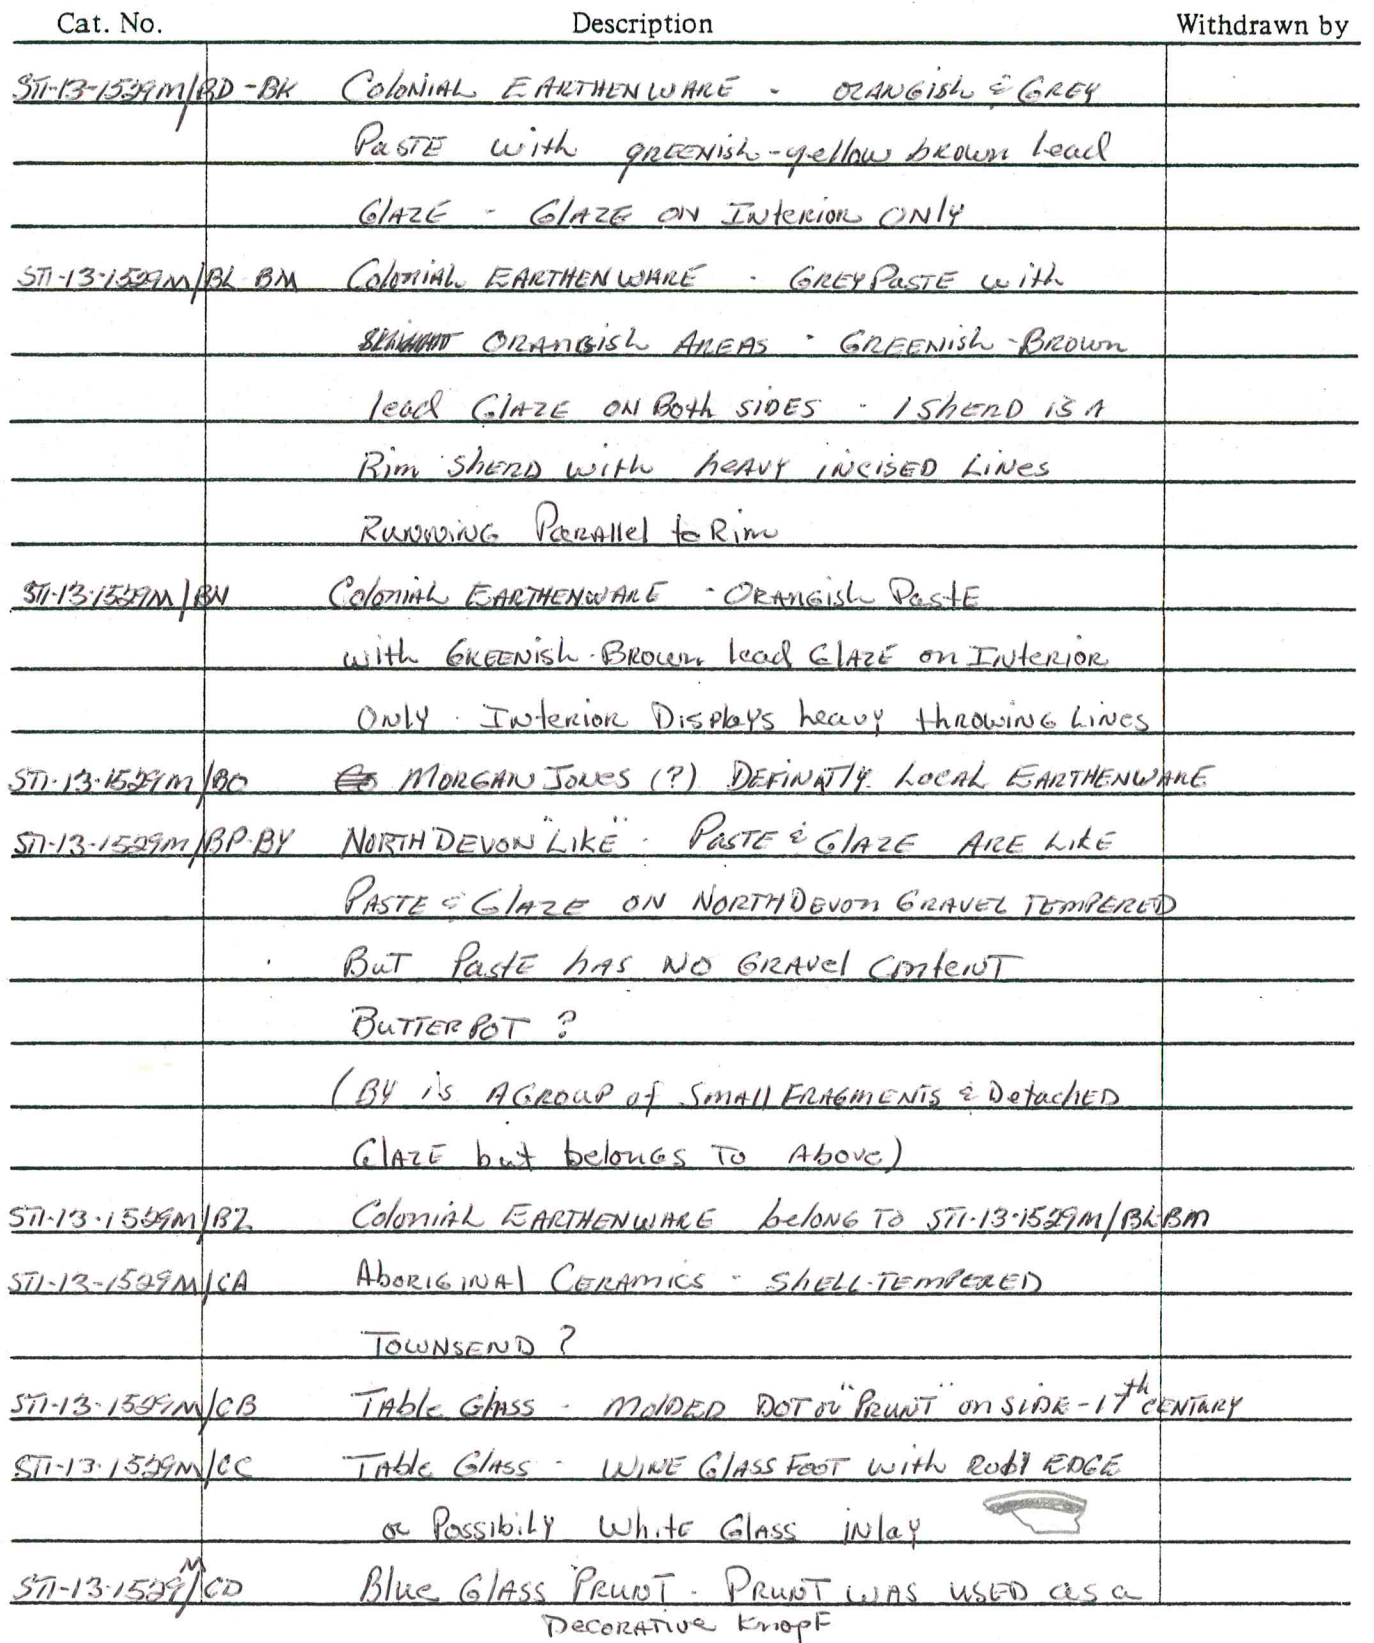 Cat. No. Description Withdrawn by
ST1-13-1529M/BD-BK Colonial EARTHENWARE - ORANGISH & GREY
PASTE with GREENISH-yellow brown lead
GLAZE - GLAZE ON INTERIOR ONLY
ST1-13-1529M/BL BM Colonial EARTHENWARE - GREY PASTE with
ORANGISH AREAS - GREENISH-BROWN
lead GLAZE ON BOTH SIDES - 1 SHERD IS A
RIM SHERD WITH HEAVY INCISED LINES
RUNNING PARALLEL to RIM
ST1-13-1529M/BN Colonial EARTHENWARE - ORANGISH PASTE
with GREENISH-BROWN lead GLAZE on INTERIOR
ONLY - INTERIOR DISPLAYS heavy THROWING LINES
ST1-13-1529M/BO MORGAN JONES (?) DEFINATLY LOCAL EARTHENWARE
ST1-13-1529M/BP-BY NORTH DEVON "LIKE" - PASTE & GLAZE ARE LIKE
PASTE & GLAZE ON NORTH DEVON GRAVEL TEMPERED
BUT PASTE HAS NO GRAVEL CONTENT
BUTTER POT ?
(BY is A GROUP of SMALL FRAGMENTS & DETACHED
GLAZE but belongs TO ABOVE)
ST1-13-1529M/BZ Colonial EARTHENWARE belong TO ST1-13-1529M/BL-BM
ST1-13-1529M/CA ABORIGINAL CERAMICS - SHELL-TEMPERED
TOWNSEND ?
ST1-13-1529M/CB TABLE GLASS - MOLDED DOT or "PRUNT" on SIDE - 17th CENTARY
ST1-13-1529M/CC TABLE GLASS - WINE GLASS FOOT with RUBY EDGE
or POSSIBILY WHITE GLASS inlay
ST1-13-1529M/CD BLUE GLASS PRUNT - PRUNT WAS USED as a
DECORATIVE KNOPF